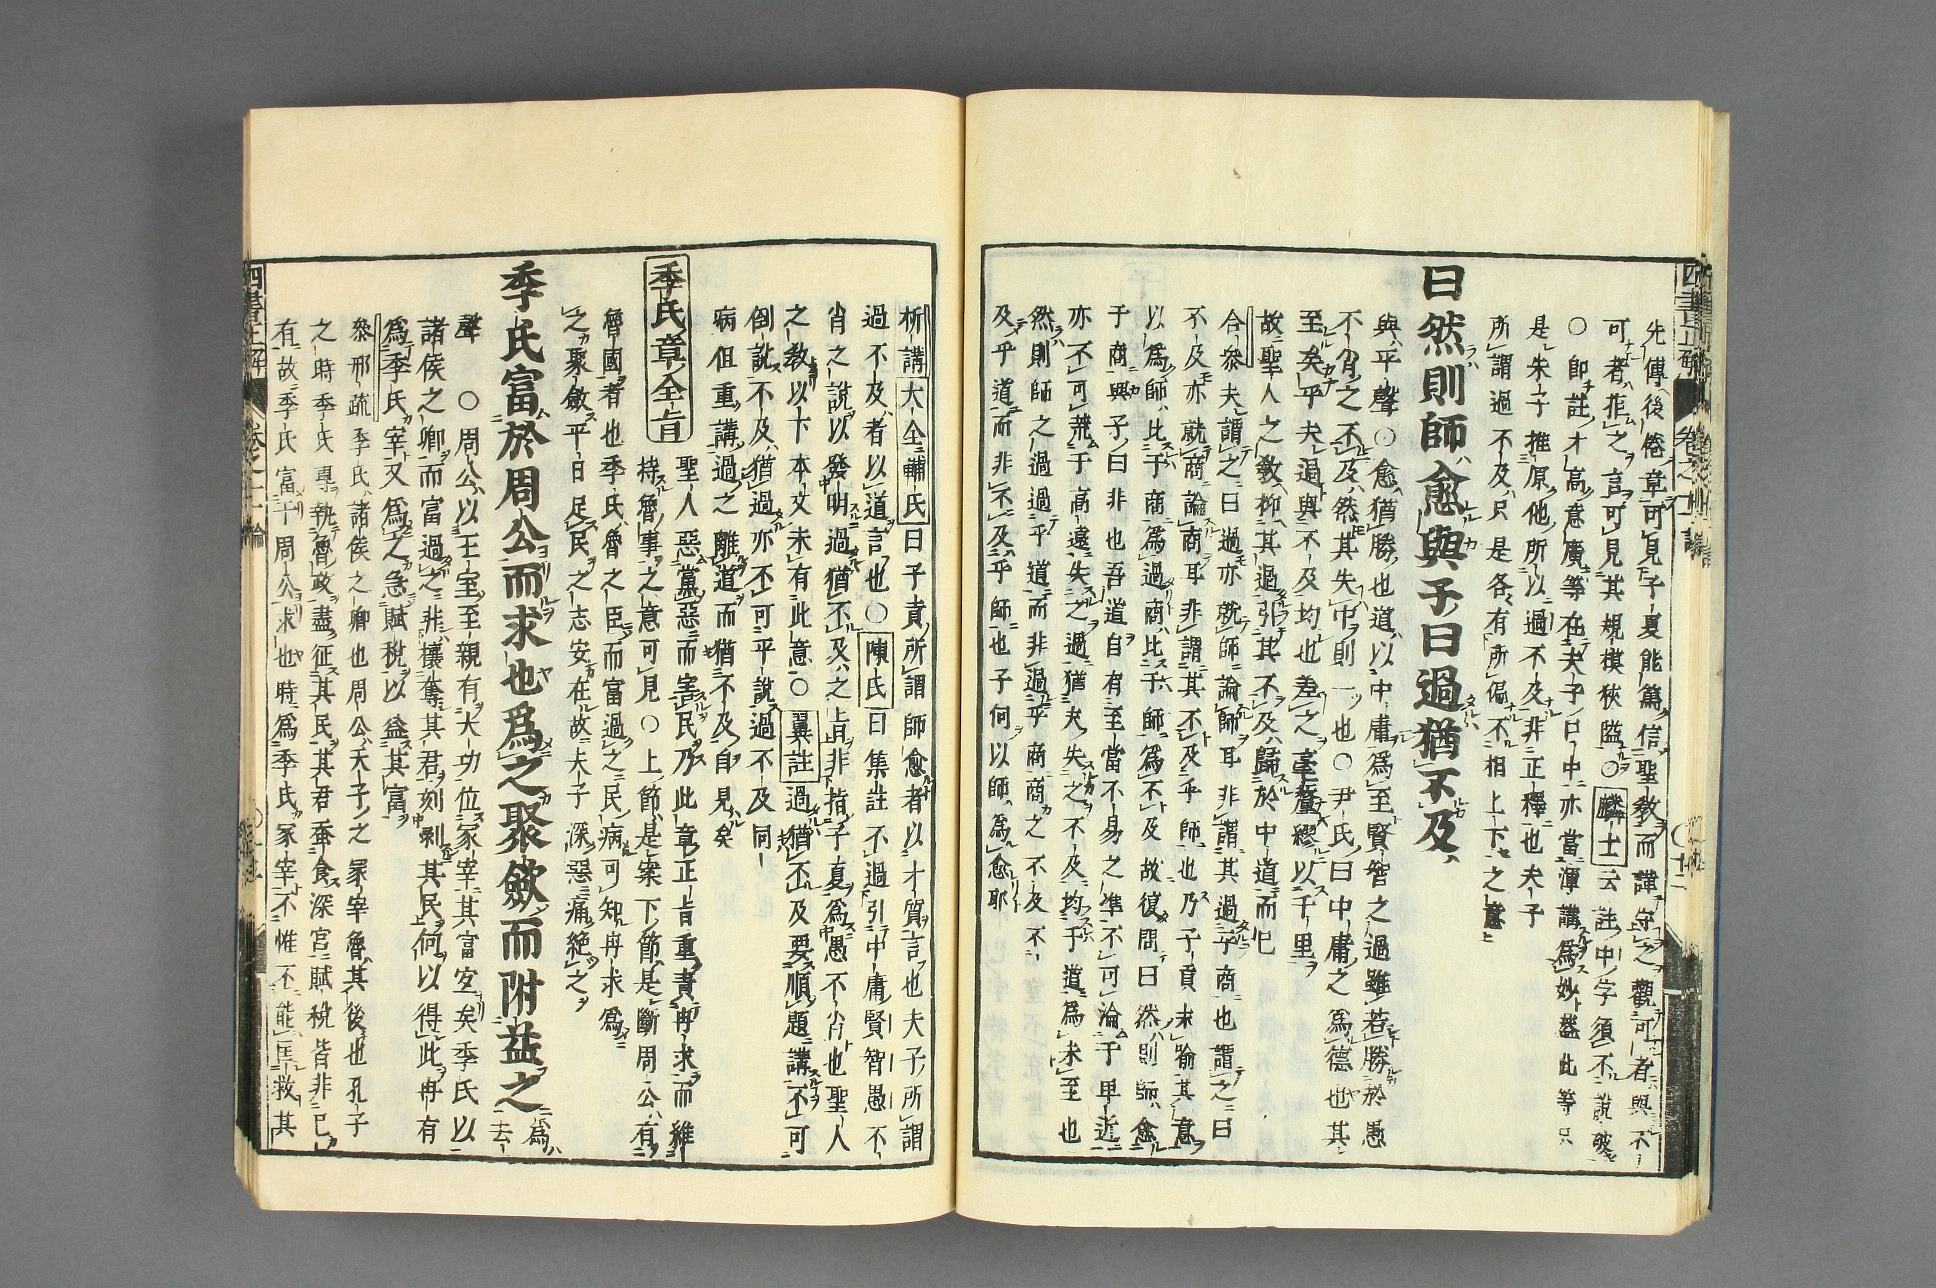 先傳後倦章可見子夏能篤信聖敎而謹守之觀可者與不
可者拒之言可見其規模狹隘○麟士云註中字須不說破
○卽註才高意廣等在夫子口中亦當渾講爲妙蓋此等只
是朱子推原他所以過不及非正釋也夫子
所謂過不及只是各有所偏不相上下之意
曰然則師愈與子曰過猶不及
與平聲○愈猶勝也道以中庸爲至賢智之過雖若勝於愚
不肖之不及然其失中則一也○尹氏曰中庸之爲德也其
至矣乎夫過與不及均也差之毫釐繆以千里
故聖人之敎抑其過引其不及歸於中道而已
合參夫謂之曰過亦就師論師耳非謂其過乎商也謂之曰
不及亦就商論商耳非謂其不及乎師也乃子貢未喻其意
以爲師比于商爲過商比于師爲不及故復問曰然則師愈
于商與子曰非也吾道自有至當不易之準不可淪于卑近
亦不可荒于高遠失之過猶夫失之不及均于道爲未至也
然則師之過過乎道而非過乎商商之不及不
及乎道而非不及乎師也子何以師爲愈耶
析講大全輔氏曰子貢所謂師愈者以才質言也夫子所謂
過不及者以道言也○陳氏曰集註不過引中庸賢智愚不
肖之說以發明過猶不及之旨非指子夏爲愚不肖也聖人
之敎以下本文未有此意○翼註過猶不及要順題講不可
倒說不及猶過亦不可平說過不及同
病但重講過之離道而猶不及自見矣
季氏章全旨
聖人惡黨惡而害民乃此章正旨重責冉求而維
持魯事之意可見○上節是案下節是斷周公有
魯國者也季氏魯之臣而富過之民病可知冉求爲
之聚斂平日足民之志安在故夫子深惡痛絕之
季氏富於周公而求也爲之聚斂而附益之
爲去
聲○周公以王室至親有大功位冢宰其富宜矣季氏以
諸侯之卿而富過之非攘奪其君刻剝其民何以得此冉有
爲季氏宰又爲之急賦稅以益其富
參邢疏季氏諸侯之卿也周公天子之冢宰魯其後也孔子
之時季氏專執魯政盡征其民其君蠶食深宮賦稅皆非己
有故季氏富于周公求也時爲季氏冢宰不惟不能匡救其